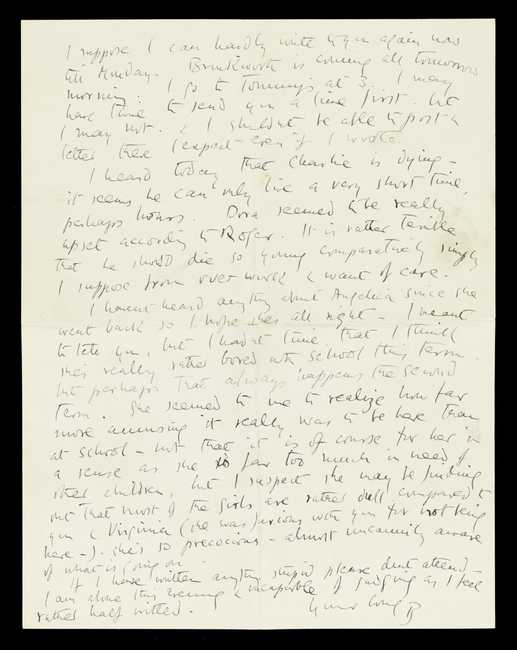 I suppose I can hardly write to you again now
till Monday. Brinkworth is coming all tomorrow
morning. I go to Tommy's at 3. I may
have time to send you a line first. But
I may not. & I shouldn't be able to post a
letter there I expect even if I wrote.
I heard today that Charlie is dying –
it seems he can only live a very short time,
perhaps hours. Dora seemed to be really
upset according to Roger. It is rather terrible
that he should die so young comparatively simply
I suppose from over work & want of care.
I havent heard anything about Angelica since she
went back so I hope she's all right – I meant
to tell you, but I hadn't time that I think
she's really rather bored with school this term.
but perhaps that always happens the second
term. She seemed to me to realize how far
more amusing it really was to be here than
at school – not that it is of course for her in
a sense as she is far too much in need of
other children, but I suspect she may be finding
out that most of the girls are rather dull compared to
you & Virginia (she was furious with you for not being
here –). She's so precocious – almost uncannily aware
of what is going on.
If I have written anything stupid please dont attend –
I am alone this evening & incapable of judging as I feel
rather half witted.
Your loving B